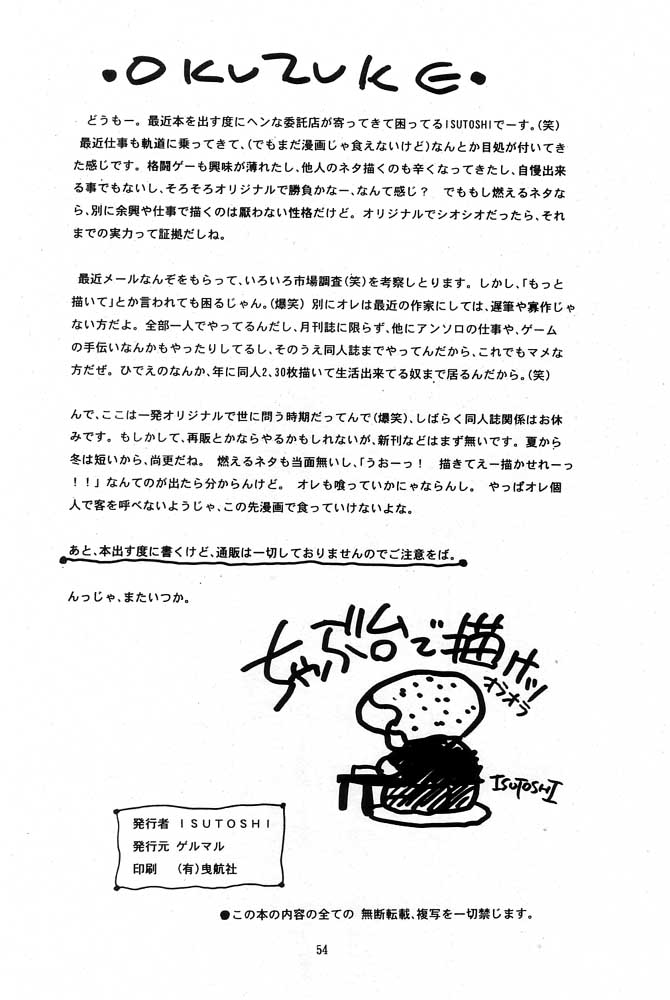 ・OKUZUKE・
どうもー。最近本を出す度にヘンな委託店が寄ってきて困ってるISUTOSHIでーす。(笑)
最近仕事も軌道に乗ってきて、(でもまだ漫画じゃ食えないけど)なんとか目処が付いてき
た感じです。格闘ゲーも興味が薄れたし、他人のネタ描くのも辛くなってきたし、自慢出来
る事でもないし、そろそろオリジナルで勝負かなー、なんて感じ? でももし燃えるネタな
ら、別に余興や仕事で描くのは厭わない性格だけど。オリジナルでシオシオだったら、それ
までの実力って証拠だしね。
最近メールなんぞをもらって、いろいろ市場調査(笑)を考察しとります。しかし、「もっと
描いて」とか言われても困るじゃん。(爆笑) 別にオレは最近の作家にしては、遅筆や寡作じゃ
ない方だよ。全部一人でやってるんだし、月刊誌に限らず、他にアンソロの仕事や、ゲーム
の手伝いなんかもやったりしてるし、そのうえ同人誌までやってんだから、これでもマメな
方だぜ。ひでえのなんか、年に同人2,30枚描いて生活出来てる奴まで居るんだから。(笑)
んで、ここは一発オリジナルで世に問う時期だってんで(爆笑)、しばらく同人誌関係はお休
みです。もしかして、再販とかならやるかもしれないが、新刊などはまず無いです。夏から
冬は短いから、尚更だね。 燃えるネタも当面無いし、「うおーっ! 描きてえー描かせれーっ
!!」なんてのが出たら分からんけど。 オレも喰っていかにゃならんし。 やっぱオレ個
人で客を呼べないようじゃ、この先漫画で食っていけないよな。
あと、本出す度に書くけど、通販は一切しておりませんのでご注意をば。
んっじゃ、またいつか。
ちゃぶ台で描けッ!
オラオラ
ISUTOSHI
発行者 ISUTOSHI
発行元 ゲルマル
印刷 (有)曳航社
●この本の内容の全ての 無断転載、複写を一切禁じます。
54